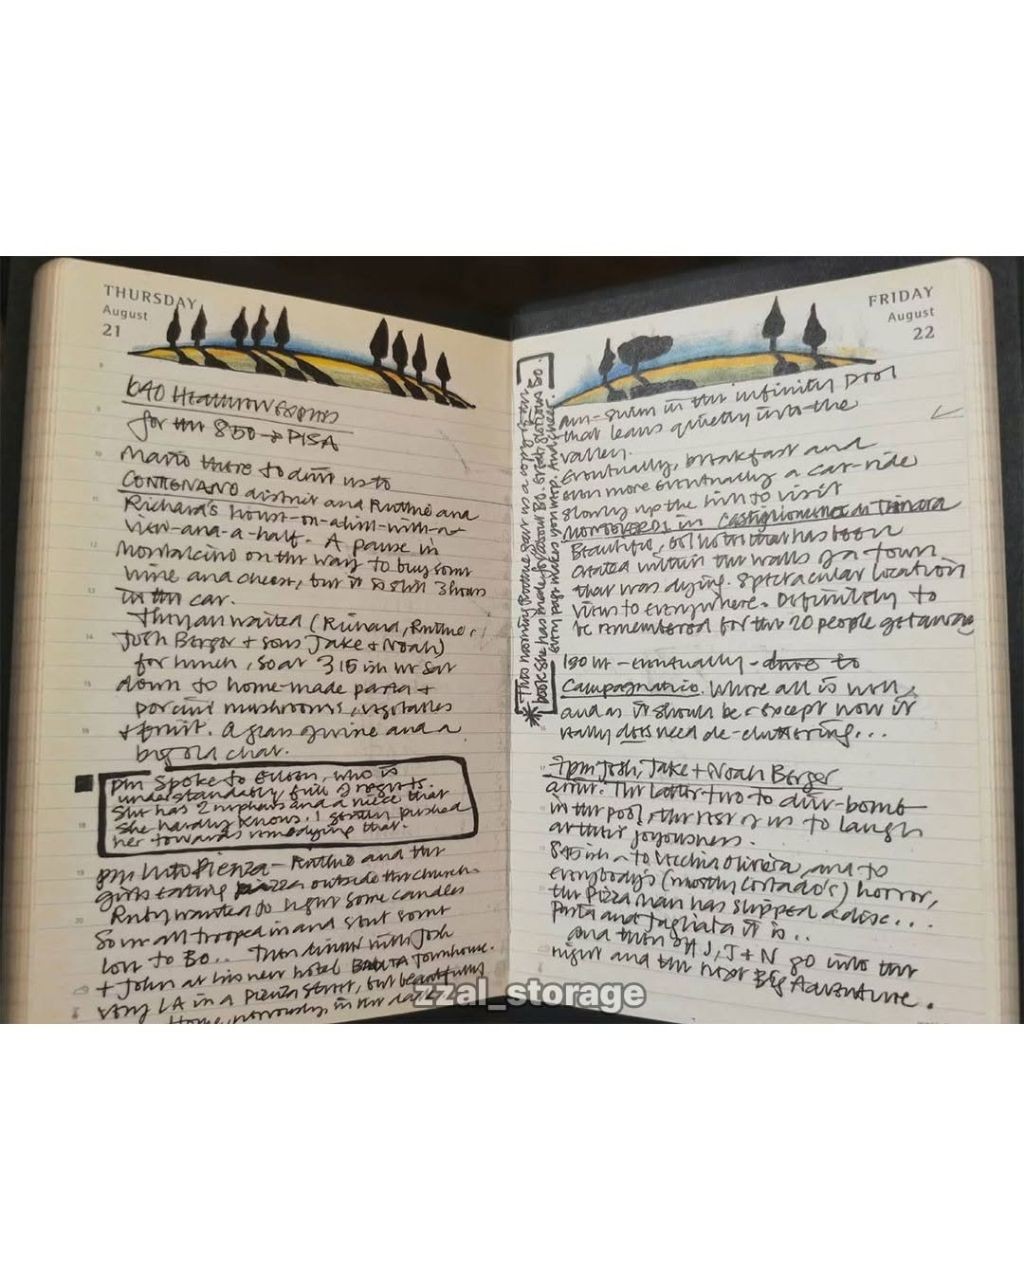 THURSDAY
August
21
640 HEATHROW EXPRESS
for the 850 → PISA
Mario there to drive us to
CONTIGNANO district and Ruthie and
Richard's house-on-a hill-with-a-
view-and-a-half. A pause in
Montalcino on the way to buy some
wine and cheese, but it is still 3 hours
in the car.
They all waited (Richard, Ruthie,
Josh Berger + sons Jake + Noah)
for lunch, so at 315 ish we sat
down to home-made pasta +
porcini mushrooms, vegetables
+ fruit. A glass of wine and a
big old chat.
pm Spoke to Eileen, who is
understandably full of regrets.
She has 2 nephews and a niece that
she hardly knows. I gently pushed
her towards remedying that.
pm Into Pienza - Ruthie and the
girls eating pizza outside the church.
Ruby wanted to light some candles
So we all trooped in and sent some
love to Bo... Then dinner with Josh
+ John at his new hotel Townhouse.
very LA in a Pienza street, but beautifully
Home, nervously, in the
FRIDAY
August
22
am - swim in the infinity pool
that leans quietly into the
valley.
Eventually, breakfast and
even more eventually a car-ride
slowly up the hill to visit
MONTEVERDI in Castiglioncello di Trinoro
Beautiful, hotel that has been
created within the walls of a town
that was dying. Spectacular location
views to everywhere. Definitely to
be remembered for the 20 people getaway
130 ish - eventually - drive to
Campagnatico. Where all is well,
and as it should be - except now it
really does need de-cluttering...
7pm Josh, Jake + Noah Berger
arrive. The latter two to dive-bomb
in the pool, the rest of us to laugh
at their joyousness.
845 ish - to Vecchia Oliviera and to
everybody's (mostly Cortado's) horror,
the Pizza man has slipped a disc...
Pasta and Tagliata it is..
And then off J, J + N go into the
night and the next Big Adventure.
* This morning Ruthie gave us a copy of the
book she has made for/about Bo. Great, glorious Bo.
Every page makes you weep. And cheer.
zzal_storage